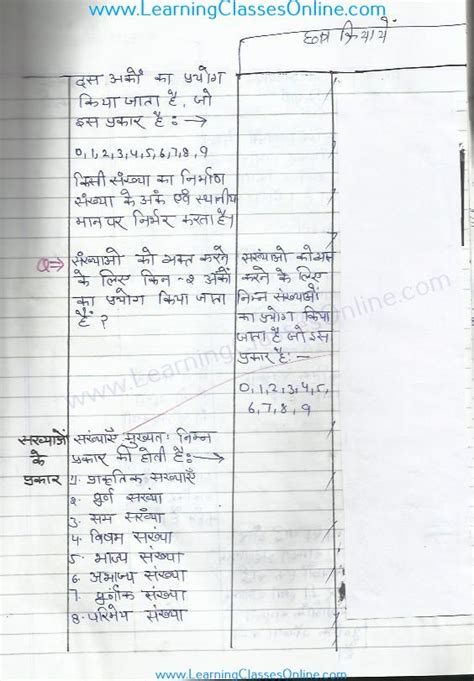 www.LearningClassesOnline.com
छात्र क्रियायें
दस अंकों का प्रयोग
किया जाता है, जो
इस प्रकार है :- →
0,1,2,3,4,5,6,7,8,9
किसी संख्या का निर्माण
संख्या के अंक एवं स्थानीय
मान पर निर्भर करता है।
Q→ संख्याओं को व्यक्त करने
के लिए किन -२ अंकों
का प्रयोग किया जाता
है ?
संख्याओं को व्यक्त
करने के लिए
निम्न संख्याओं
का प्रयोग किया
जाता है जो इस
प्रकार है :-
0,1,2,3,4,5,
6,7,8,9
www.LearningClassesOnline.com
संख्याओं
के
प्रकार
संख्याएँ मुख्यतः निम्न
प्रकार की होती है :- →
1. प्राकृतिक संख्याएँ
२. पूर्ण संख्या
3. सम संख्या
4. विषम संख्या
5. भाज्य संख्या
6. अभाज्य संख्या
7. पूर्णांक संख्या
8. परिमेय संख्या
www.LearningClassesOnline.com